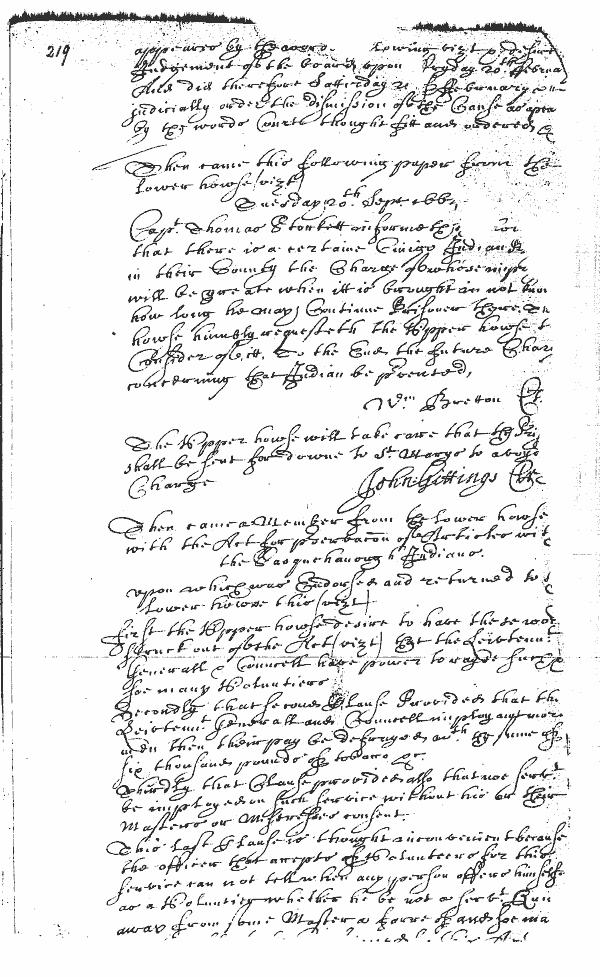 219
appeares by the words. lowing vizt
Judgement of the board upon Fryday 20th februa
And did therefore Satterday 21 ffebruary
judicially order the dismission of the Cause as apea
by the words Court thought fitt and ordered &
Then came this following paper from the
Lower howse (vizt)
Tuesday 20th Sept. 1664,
Capt. Thomas Stockett informeth
that there is a certaine Cinigo Indian
in their County the Charge of whose
will be greate when itt is brought in not
how long he may Continue Prisoner there
howse humbly requesteth the Upper howse t
Consider of itt, To the End the future Char
concerning that Indian be prvented,
Wm Bretton Cl.
The Upper howse will take care that the Pri
shall be sent for downe to St Marys to avoyd
Charge
John Gittings Clk
Then came a Member from the lower howse
with the Act for pservacon of the Articles wit
the Sasquehanough Indians.
upon which was Endorsed and returned to
Lower howse this (vizt)
first the Upper howse desire to have these wor
Struck out of the Act (vizt) that the Leivtennt
Generall & Councell have power to rayse such
soe many Voluntiers
Secondly that second Clause Provided that the
Leivtennt Generall and Councell imploy any more
men then their pay be defrayed with the sume of
six thousand pounds of tobacco &c.
Thirdly that Clause provided also that noe servt
be imployed on such service without his or their
Masters or Mistresses consent.
This last Clause is thought inconvenient because
the officer that accepts of Voluntiers for this
service can not tell when any person offers himselfe
as a Voluntier whether he be not a servt Run
away from some Master a farre of and soe ma